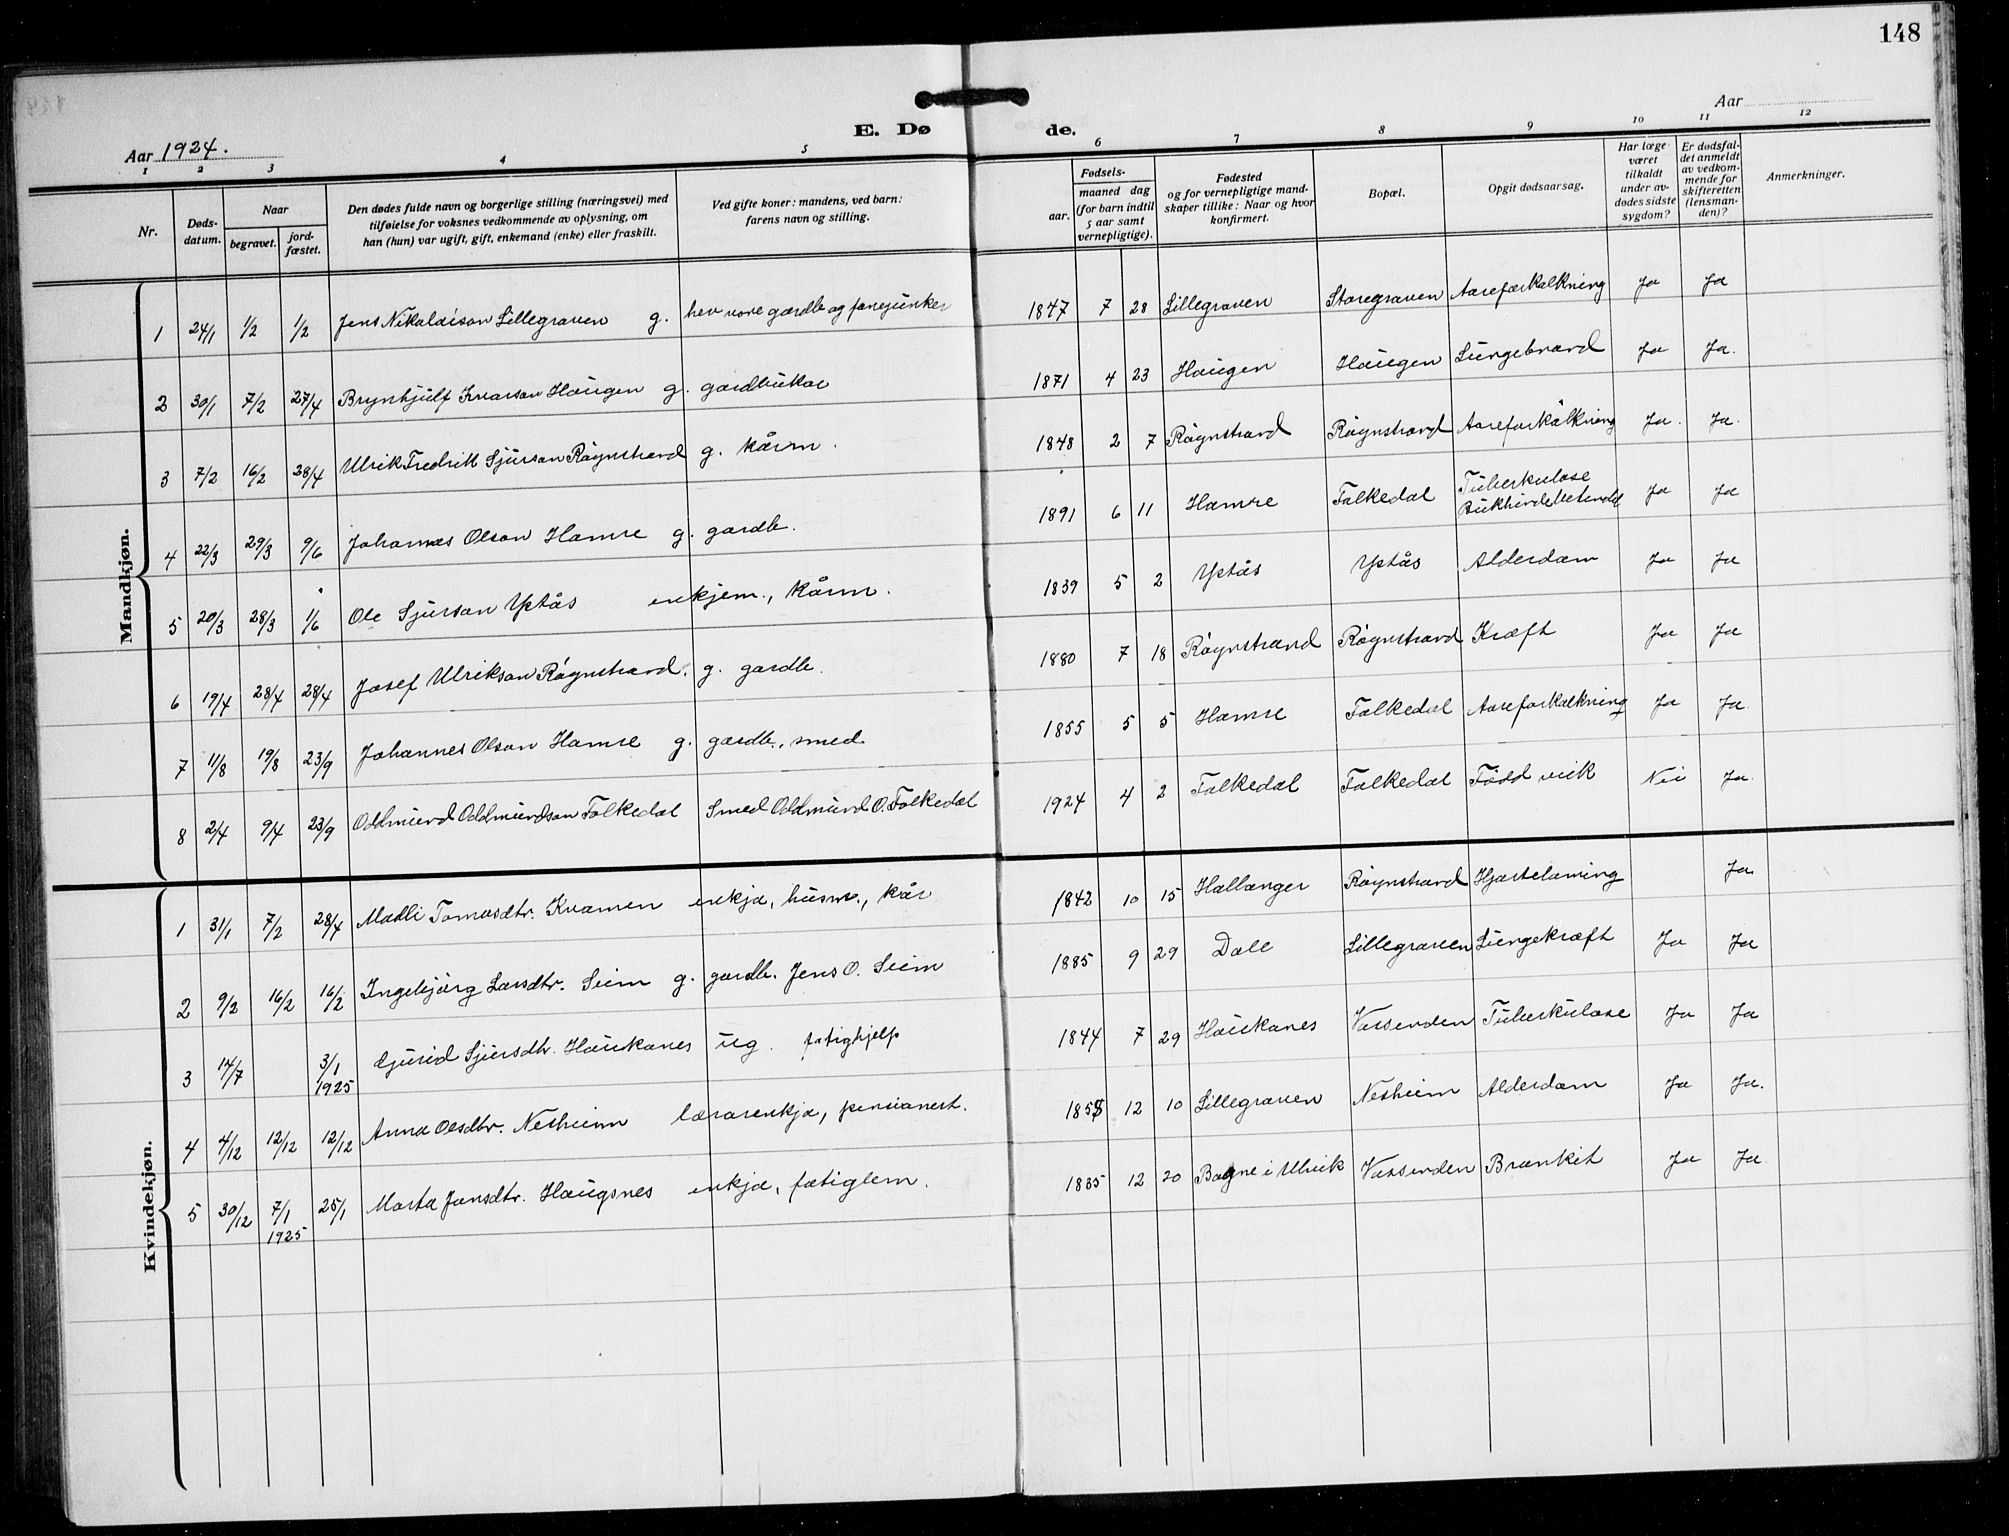 148
E. Dø de.
Aar 1924. Aar
1 2 3 4 5 6 7 8 9 10 11 12
Nr. | Døds-datum. | Naar begravet. | jord-fæstet. | Den dødes fulde navn og borgerlige stilling (næringsvei) med tilføielse for voksnes vedkommende av oplysning, om han (hun) var ugift, gift, enkemand (enke) eller fraskilt. | Ved gifte koner: mandens, ved barn: farens navn og stilling. | Fødsels- aar. | maaned dag (for barn indtil 5 aar samt vernepligtige). | Fødested og for vernepligtige mandskaper tillike: Naar og hvor konfirmert. | Bopæl. | Opgit dødsaarsag. | Har læge været tilkaldt under avdødes sidste sygdom? | Er dødsfaldet anmeldt av vedkommende for skifteretten (lensmanden)? | Anmerkninger.
Mandkjøn.
1 24/1 1/2 1/2 Jens Nikolaison Lillegraven g. hev vore gardb og fanejunker 1847 7 28 Lillegraven Storegraven Aareforkalkning Ja Ja
2 30/1 7/2 27/4 Brynhjulf Ivarson Haugen g. gardbrukar 1871 4 23 Haugen Haugen Lungebrand Ja Ja.
3 7/2 16/2 28/4 Ulrik Fredrik Sjurson Røynstrand g. kårm. 1848 2 7 Røynstrand Røynstrand Aareforkalkning Ja. Ja.
4 22/3 29/3 9/6 Johannes Olson Hamre g. gardb. 1891 6 11 Hamre Folkedal Tuberkulose Bukhinde Ja Ja
5 20/3 28/3 1/6 Ole Sjurson Ystås enkjem., kårm. 1839 5 2 Ystås Ystås Alderdom Ja Ja
6 19/4 28/4 28/4 Josef Ulrikson Røynstrand. g. gardb. 1880 7 18 Røynstrand Røynstrand Kræft Ja Ja
7 11/8 19/8 23/9 Johannes Olson Hamre g. gardb., smed 1855 5 5 Hamre Folkedal Aareforkalkning Ja Ja.
8 2/4 9/4 23/9 Oddmund Oddmundson Folkedal Smed Oddmund O. Folkedal 1924 4 2 Folkedal Folkedal Fødd veik Nei Ja.
Kvindekjøn.
1 31/1 7/2 28/4 Madli Tomasdtr. Kvamen enkja, husm., kår 1842 10 15 Hallanger Røynstrand Hjartelaming Ja.
2 9/2 16/2 16/2 Ingebjørg Larsdtr. Seim g. gardb. Jens O. Seim 1885 9 29 Dale Lillegraven Lungekræft Ja Ja
3 14/7 3/1 1925 Gjurid Sjursdtr. Haukanes ug. fatighjelp 1844 7 29 Haukanes Vassenden Tuberkulose Ja Ja
4 4/12 12/12 12/12 Anna Olsdtr. Nesheim lærarenkja, pensionert. 1855 12 10 Lillegraven Nesheim Alderdom Ja Ja.
5 30/12 7/1 1925 25/1 Marta Jonsdtr. Haugsnes enkja, fatiglem. 1835 12 20 Bagne i Ulvik Vassenden Bronkit Ja Ja.